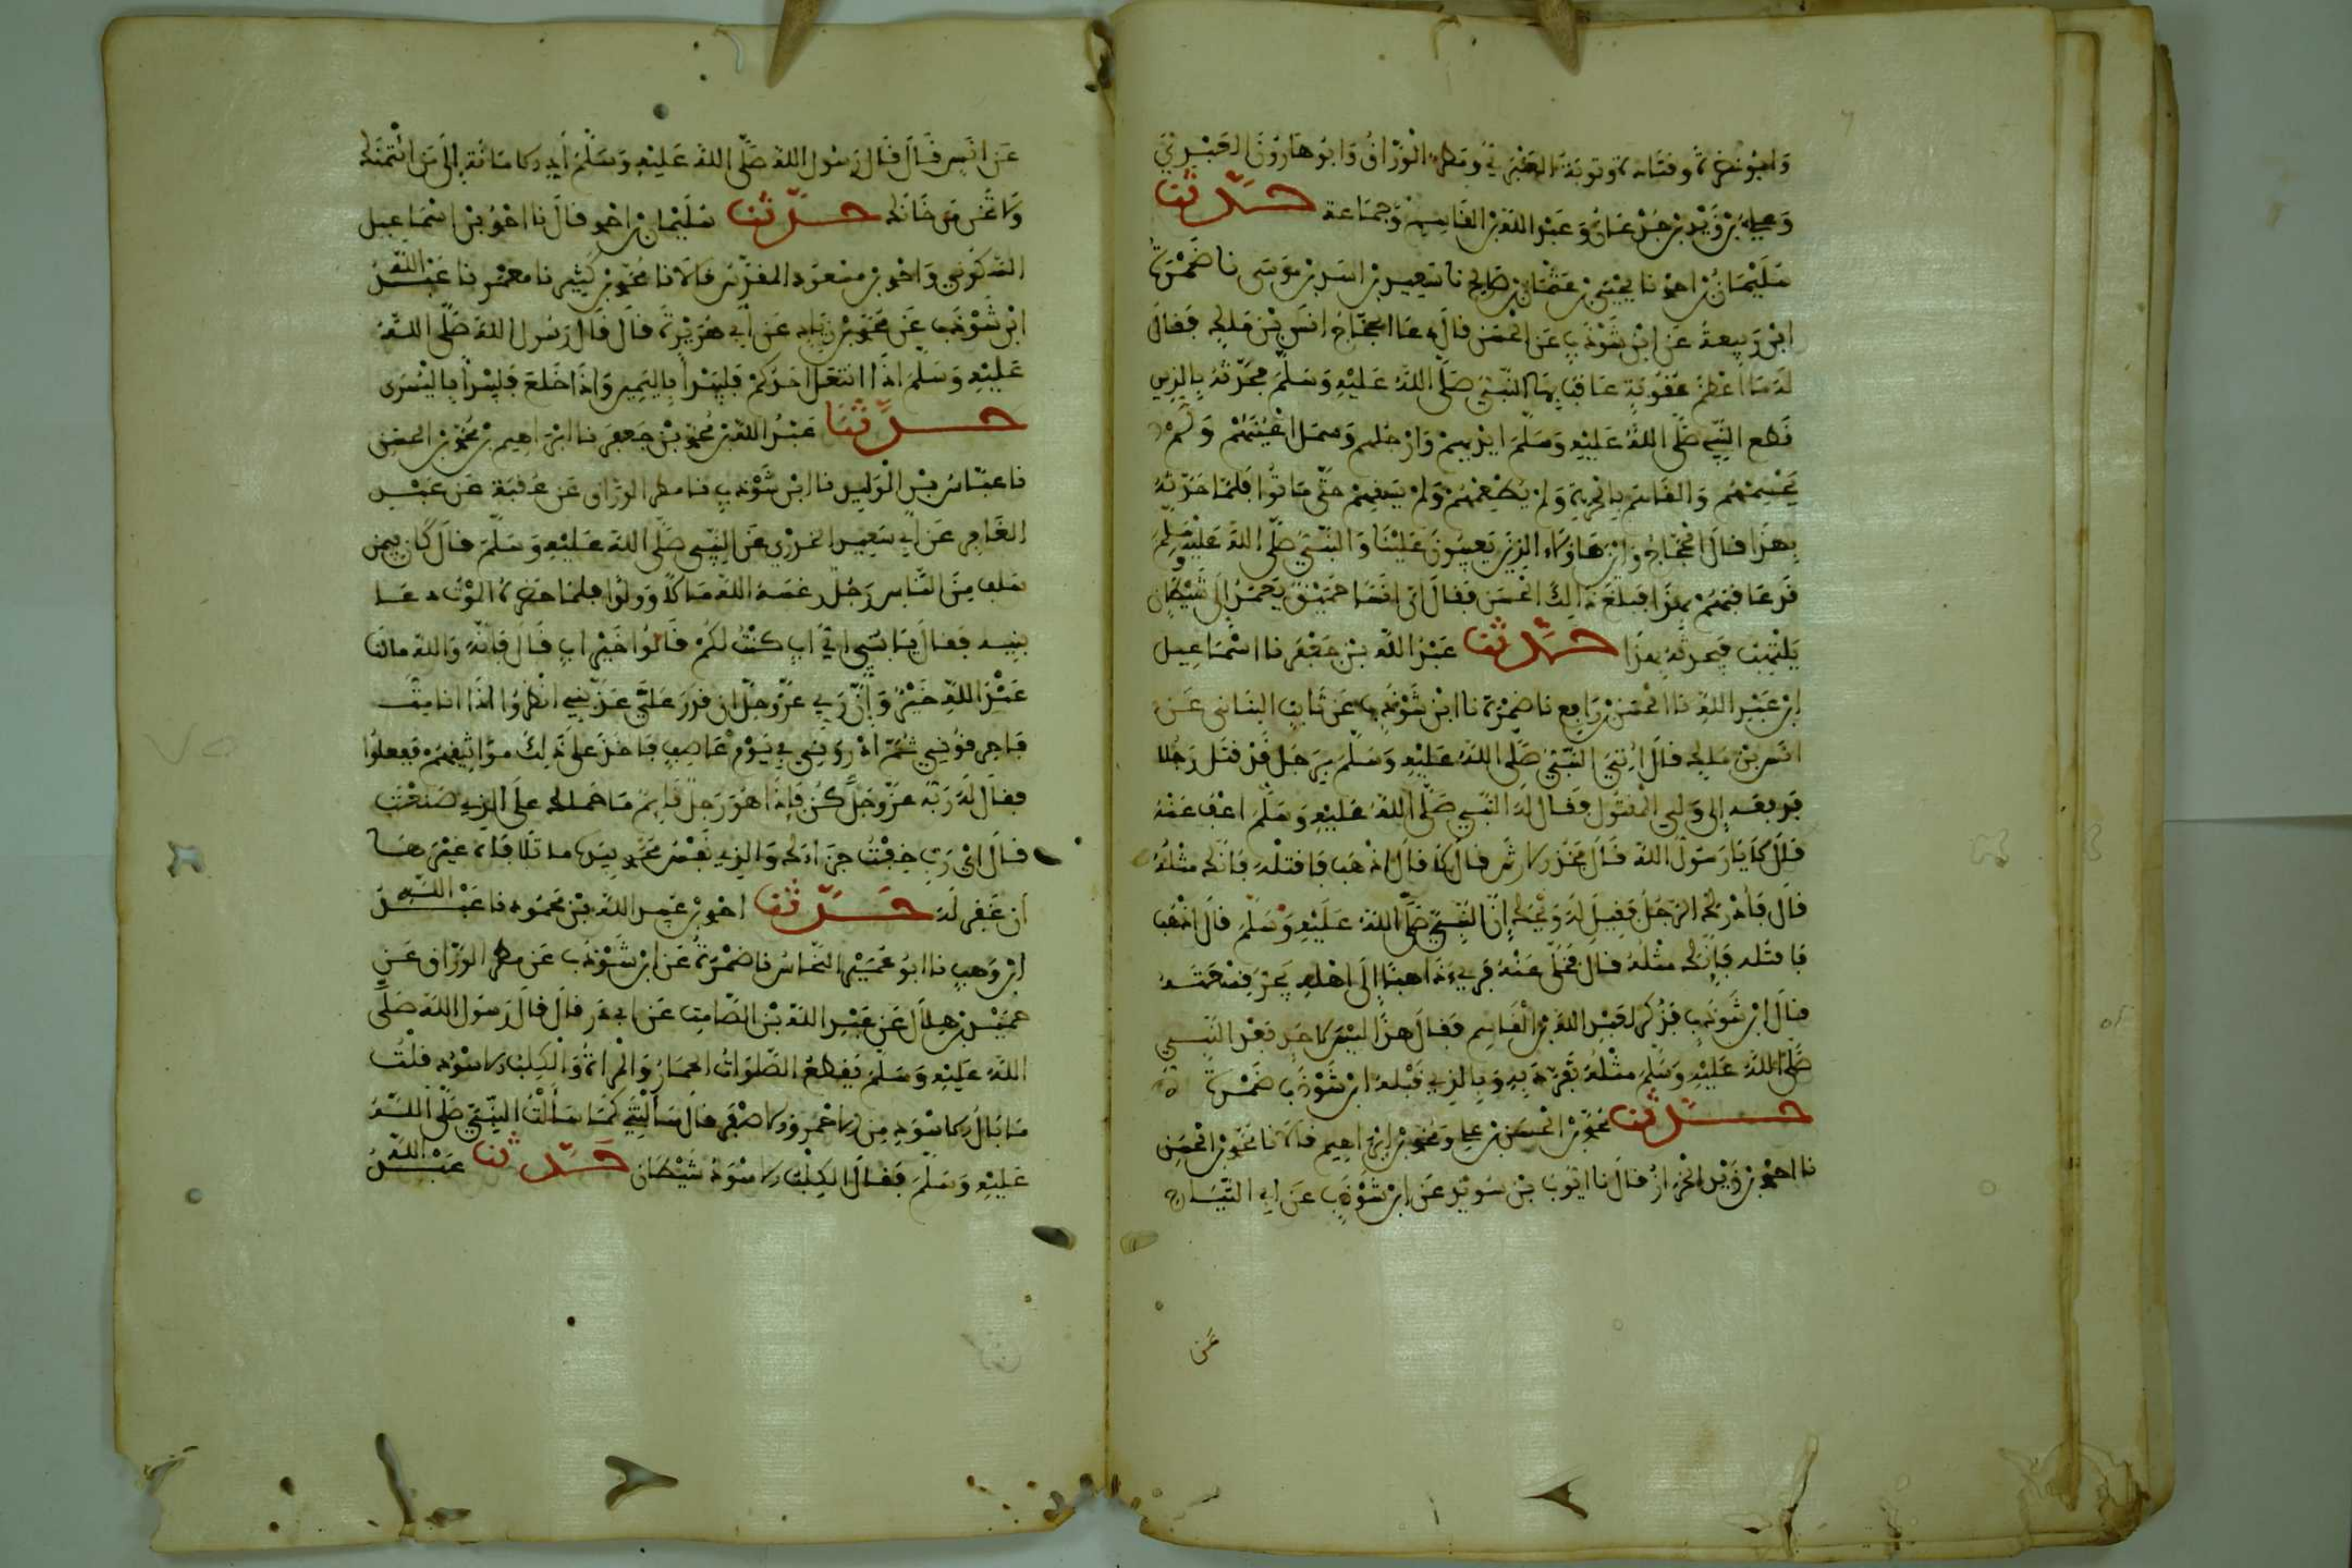 وابو نضرة وقتادة وتوبة العنبري ومطر الوراق وابو هارون العبدي
وعلي بن زيد بن جدعان وعبد الله بن القاسم وجماعة حدثنا
سليمان بن احمد نا يحيى بن عثمان بن صالح نا سعيد بن اسد بن موسى نا ضمرة
ابن ربيعة عن ابن شوذب عن الحسن قال دعا الحجاج انس بن ملك فقال
له ما اعظم عقوبة عاقب بها النبي صلى الله عليه وسلم فحدثه بالذين
قطع النبي صلى الله عليه وسلم ايديهم وارجلهم وسمل اعينهم ولم
يحسمهم والقاهم بالحرة ولم يطعمهم ولم يسقهم حتى ماتوا فلما حدثه
بهذا قال الحجاج واين هاولاء الذين يعيبون علينا والنبي صلى الله عليه وسلم
قد عاقبهم بهذا فبلغ ذلك الحسن فقال ان انسا حميق يعمد الى شيطان
يلتهب فيحدثه بهذا حدثنا عبد الله بن جعفر نا اسماعيل
ابن عبد الله نا الحسن بن رافع نا ضمرة نا ابن شوذب عن ثابت البناني عن
انس بن ملك قال اتي النبي صلى الله عليه وسلم برجل قد قتل رجلا
فدفعه الى ولي المقتول فقال له النبي صلى الله عليه وسلم اعف عنه
قال لا يا رسول الله قال فخذ الارش قال لا قال اذهب فاقتله فانك مثله
قال فادرك الرجل فقيل له ويحك ان النبي صلى الله عليه وسلم قال اذهب
فاقتله فانك مثله قال فخلى عنه فرىء ذاهبا الى اهله يجر نسعته
قال ابن شوذب فذكر لعبد الله بن القاسم فقال هذا ليس لاحد بعد النبي
صلى الله عليه وسلم مثله تفرد به وبالذي قبله ابن شوذب ضمرة
حدثنا محمد بن الحسن بن علي ومحمد بن ابراهيم قالا نا محمد بن الحسن
نا احمد بن زيد الخزاز قال نا ايوب بن سويد عن ابن شوذب عن ابي التياح
عن
عن انس قال قال رسول الله صلى الله عليه وسلم اد الامانة الى من ائتمنك
ولا تخن من خانك حدثنا سليمان بن احمد قال نا احمد بن اسماعيل
السكوني واحمد بن مسعود المقدسي قالا نا محمد بن كثير نا معمر نا عبد الله
ابن شوذب عن محمد بن زياد عن ابي هريرة قال قال رسول الله صلى الله
عليه وسلم اذا انتعل احدكم فليبدا باليمين واذا خلع فليبدا باليسرى
حدثنا عبد الله بن محمد بن جعفر نا ابراهيم بن محمد بن الحسن
نا عباس بن الوليد نا ابن شوذب نا مطر الوراق عن عقبة عن عبد
الغافر عن ابي سعيد الخدري عن النبي صلى الله عليه وسلم قال كان فيمن
سلف من الناس رجل رغسه الله مالا وولدا فلما حضرة الموت دعا
بنيه فقال يا بني اي اب كنت لكم قالوا خير اب قال فانه والله مالنا
عند الله خير وان ربي عز وجل ان قدر علي عذبني انظروا اذا انا مت
فاحرقوني ثم اذروني في يوم عاصف فاخذ على ذلك مواثيقهم ففعلوا
فقال له ربه عز وجل كن فاذا هو رجل قائم ما حملك على الذي صنعت
قال اي رب خفت عذابك والذي نفس محمد بيده ما تلافاه غيرها
ان غفر له حدثنا احمد بن عبيد الله بن محمود نا عبد الله
ابن وهب نا ابو عمير النحاس نا ضمرة عن ابن شوذب عن مطر الوراق عن
حميد بن هلال عن عبد الله بن الصامت عن ابي ذر قال قال رسول الله صلى
الله عليه وسلم يقطع الصلوات الحمار والمراة والكلب الاسود قلت
ما بال الاسود من الاحمر والاصفر قال سالتني كما سالت النبي صلى الله
عليه وسلم فقال الكلب الاسود شيطان حدثنا عبد الله